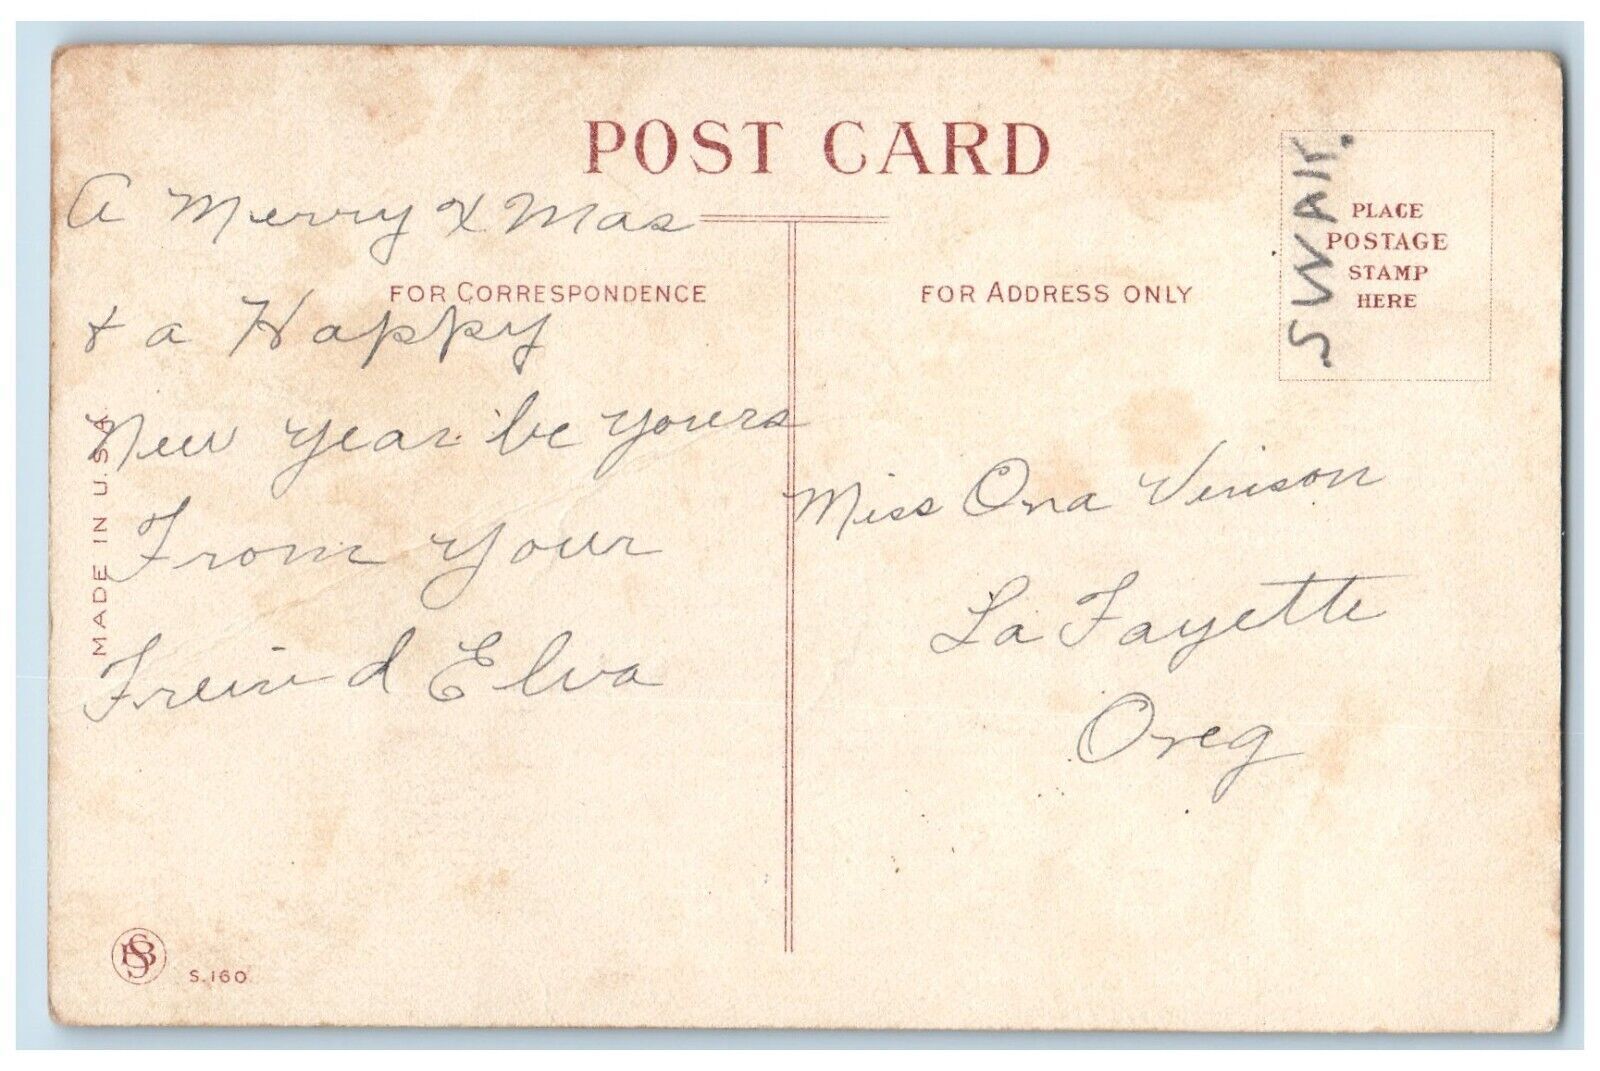 POST CARD
A Merry XMas
FOR CORRESPONDENCE
& a Happy
New Year be yours
From your
Freind Elva
MADE IN U.S.A.
S.160
FOR ADDRESS ONLY
PLACE
POSTAGE
STAMP
HERE
SWAK.
Miss Ona Vinson
La Fayette
Oreg